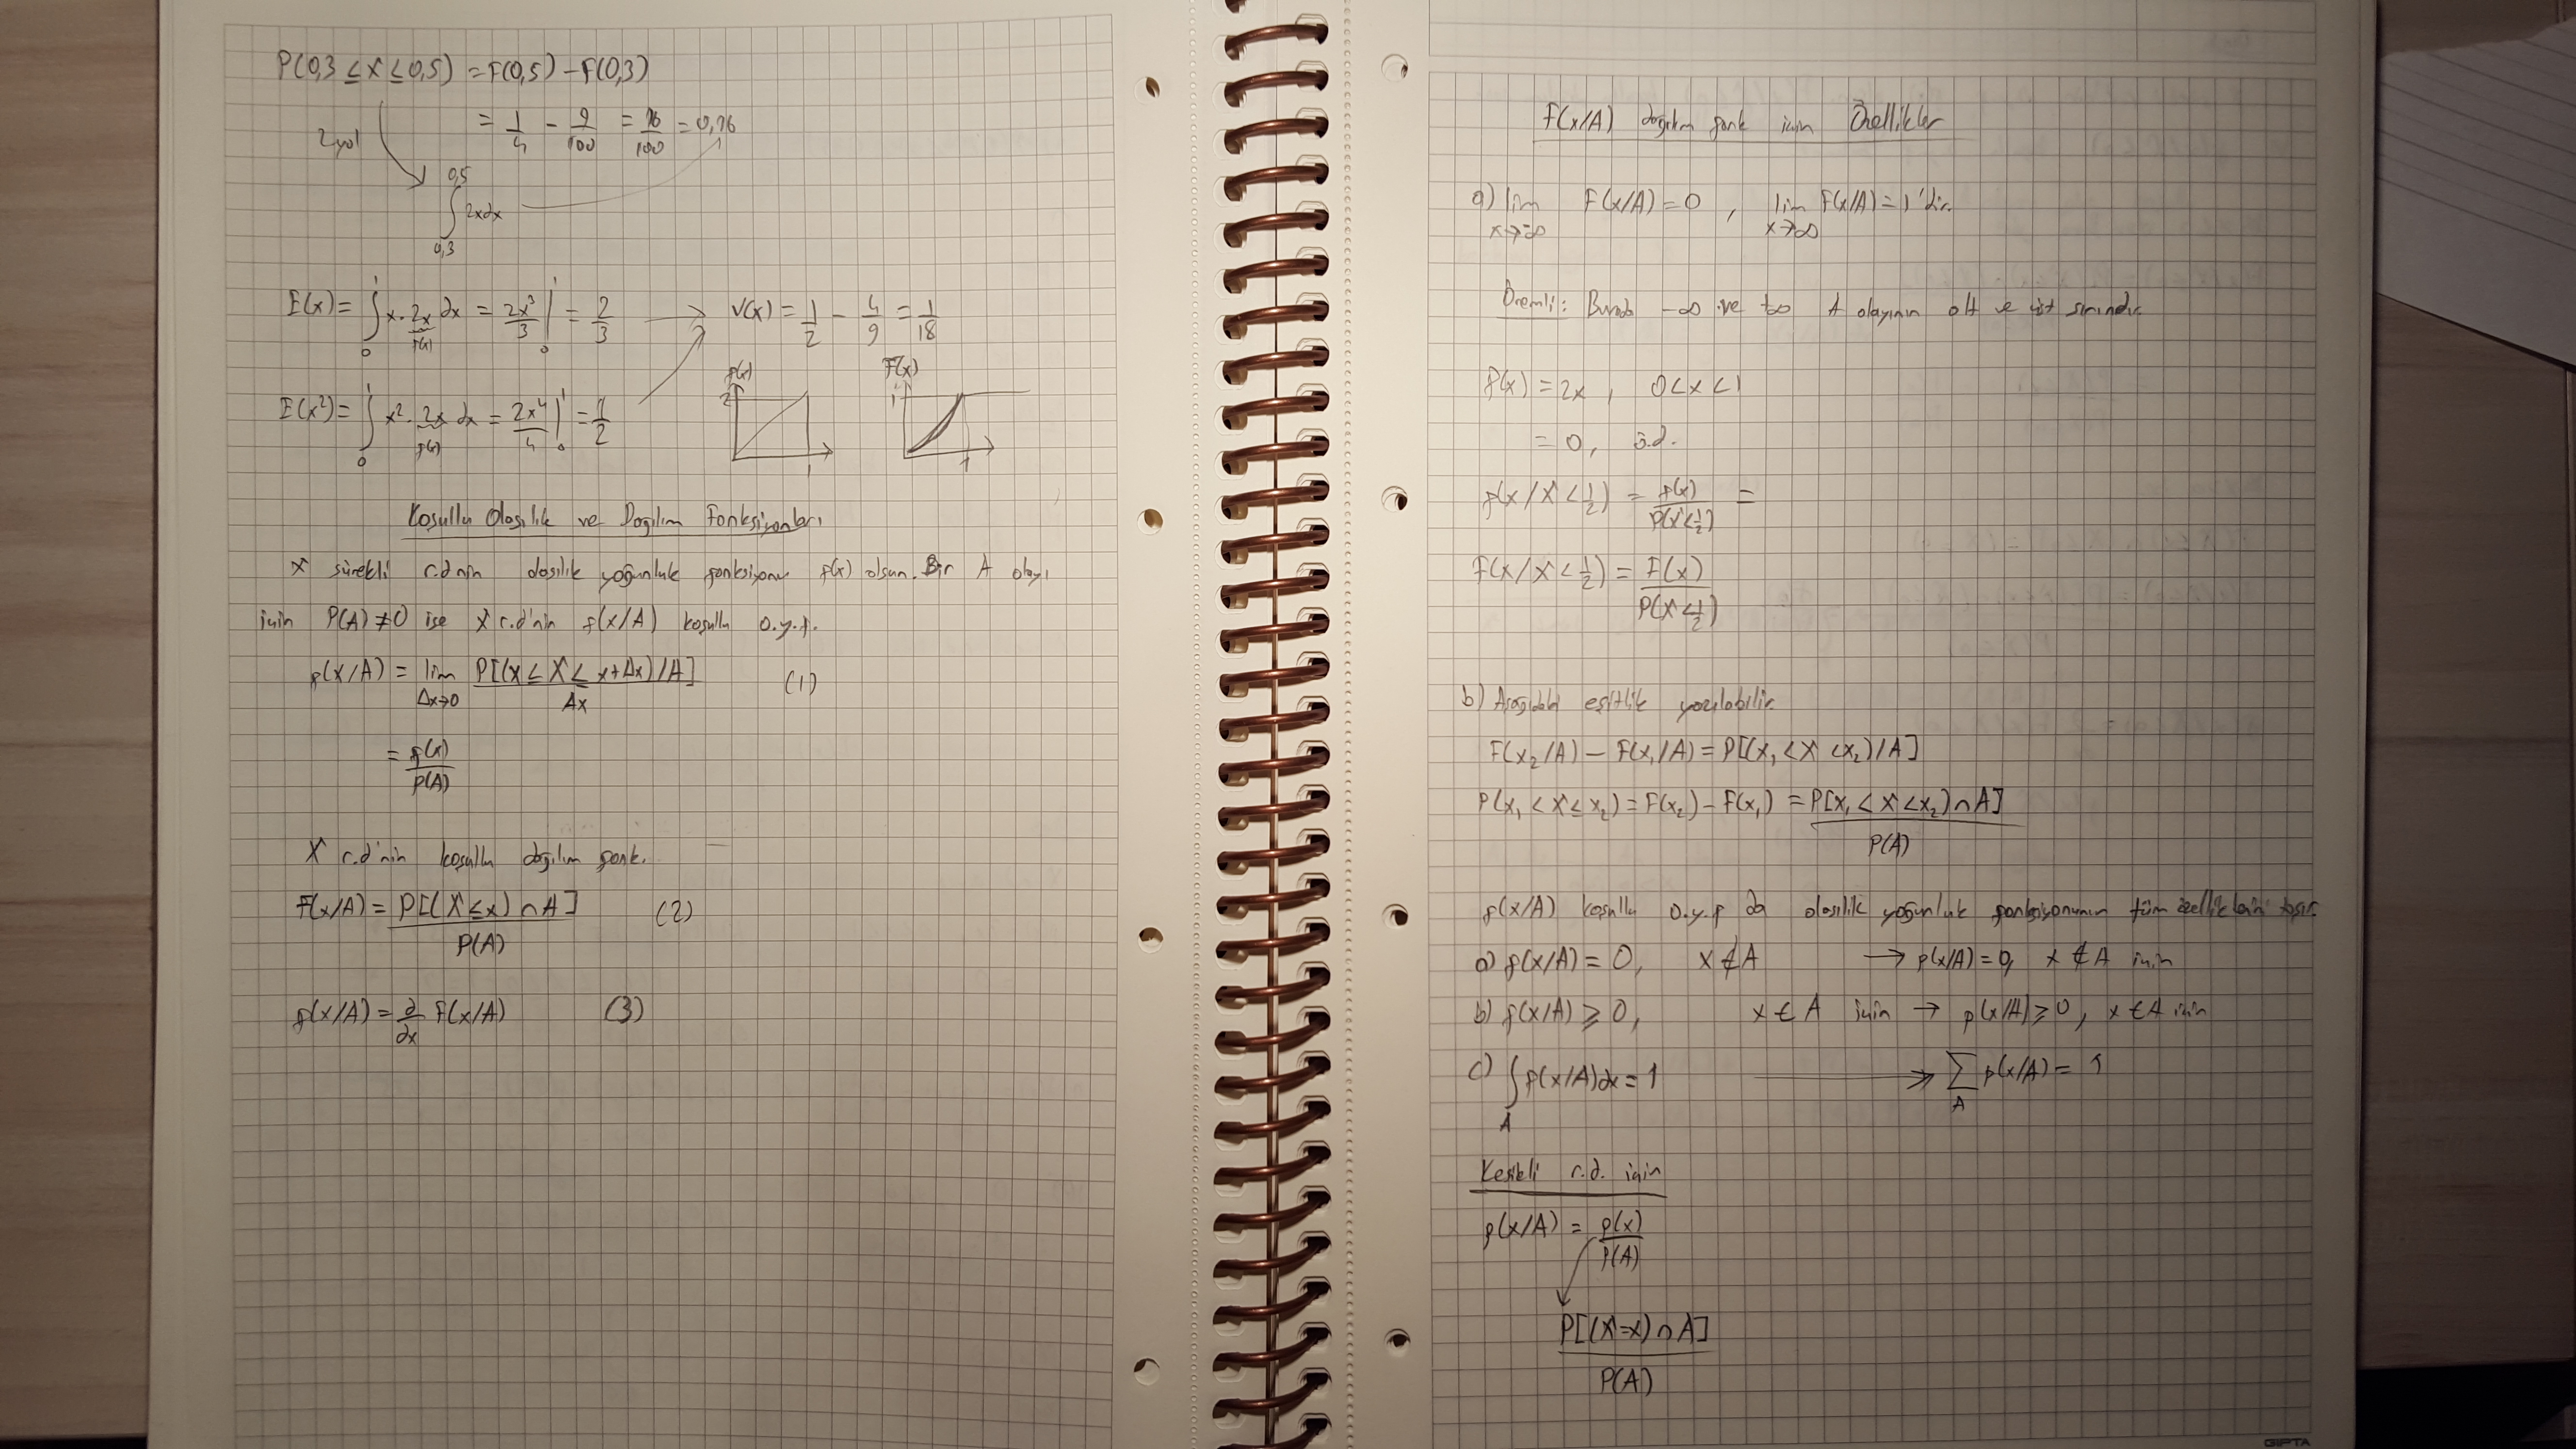 P(0,3 ≤ X ≤ 0,5) = F(0,5) - F(0,3)
= 1/4 - 9/100 = 16/100 = 0,16
2.yol
∫_{0,3}^{0,5} 2x dx
E(x) = ∫_0^1 x. 2x dx = 2x³/3 |_0^1 = 2/3 → V(x) = 1/2 - 4/9 = 1/18
f(x)
E(x²) = ∫_0^1 x². 2x dx = 2x⁴/4 |_0^1 = 1/2
f(x)
f(x) 2 1
F(x) 1 1
Koşullu Olasılık ve Dağılım Fonksiyonları
X sürekli r.d nin olasılık yoğunluk fonksiyonu f(x) olsun. Bir A olayı
için P(A) ≠ 0 ise X r.d'nin f(x/A) koşullu o.y.f.
f(x/A) = lim_{Δx→0} P[(x ≤ X ≤ x+Δx)/A] / Δx (1)
= f(x)/P(A)
X r.d'nin koşullu dağılım fonk.
F(x/A) = P[(X ≤ x) ∩ A] / P(A) (2)
f(x/A) = ∂/∂x F(x/A) (3)
F(x/A) dağılım fonk için Özellikler
a) lim_{x→-∞} F(x/A) = 0 , lim_{x→∞} F(x/A) = 1 'dir.
Önemli: Burada -∞ ve +∞ A olayının alt ve üst sınırıdır.
f(x) = 2x , 0 < x < 1
= 0, ö.d.
f(x / X < 1/2) = f(x) / P(X < 1/2) =
F(x / X < 1/2) = F(x) / P(X < 1/2)
b) Aşağıdaki eşitlik yazılabilir.
F(x₂/A) - F(x₁/A) = P[(x₁ < X < x₂)/A]
P(x₁ < X ≤ x₂) = F(x₂) - F(x₁) = P[x₁ < X < x₂) ∩ A] / P(A)
f(x/A) koşullu o.y.f da olasılık yoğunluk fonksiyonunun tüm özelliklerini taşır.
a) f(x/A) = 0, x ∉ A → p(x/A) = 0, x ∉ A için
b) f(x/A) ≥ 0, x ∈ A için → p(x/A) ≥ 0, x ∈ A için
c) ∫_A f(x/A) dx = 1 → Σ_A p(x/A) = 1
Kesikli r.d. için
p(x/A) = p(x)/P(A)
P[(X=x) ∩ A] / P(A)
GIPTA